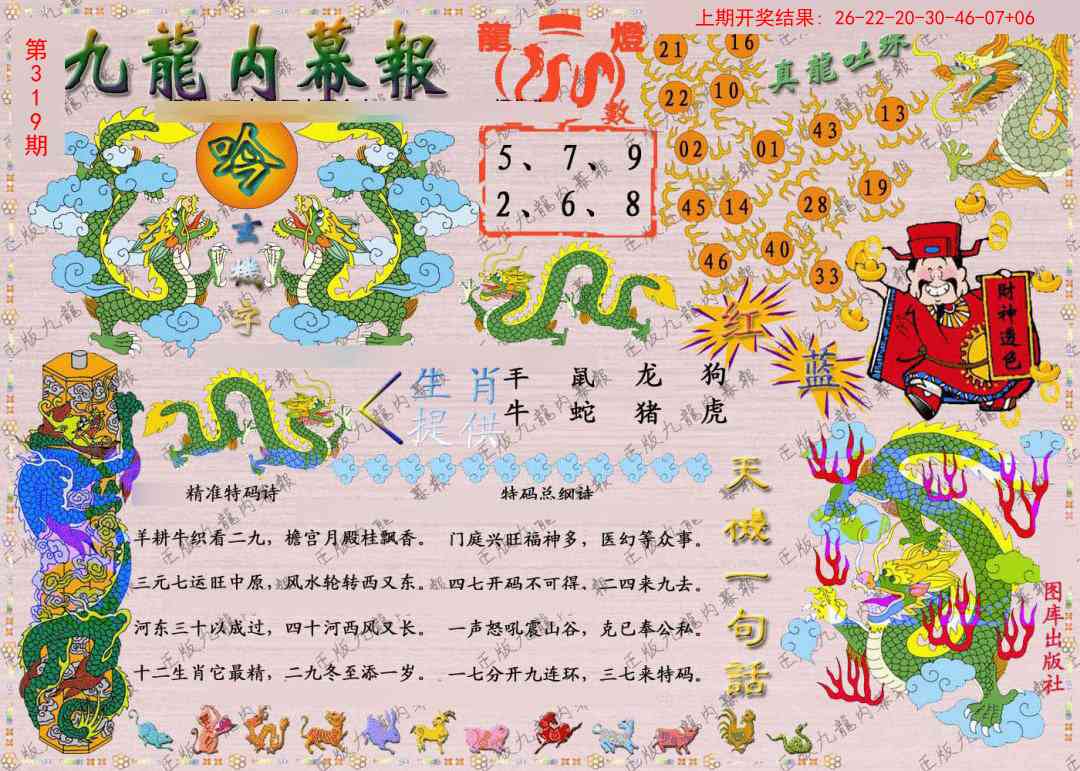 上期开奖结果：26-22-20-30-46-07+06
第319期
九龍内幕報
龍燈數
5、7、9
2、6、8
真龍吐珠
21 16
22 10
43 13
02 01
19
45 14 28
40
46 33
吟
字
红
蓝
财神透色
生肖提供
羊 鼠 龙 狗
牛 蛇 猪 虎
精准特码诗
羊耕牛织看二九，檐宫月殿桂飘香。
三元七运旺中原，风水轮转西又东。
河东三十以成过，四十河西风又长。
十二生肖它最精，二九冬至添一岁。
特码总纲诗
门庭兴旺福神多，医幻等众事。
四七开码不可得、二四来九去。
一声怒吼震山谷，克已奉公私。
一七分开九连环，三七来特码。
天候一句話
图库出版社
正版九龍内幕報